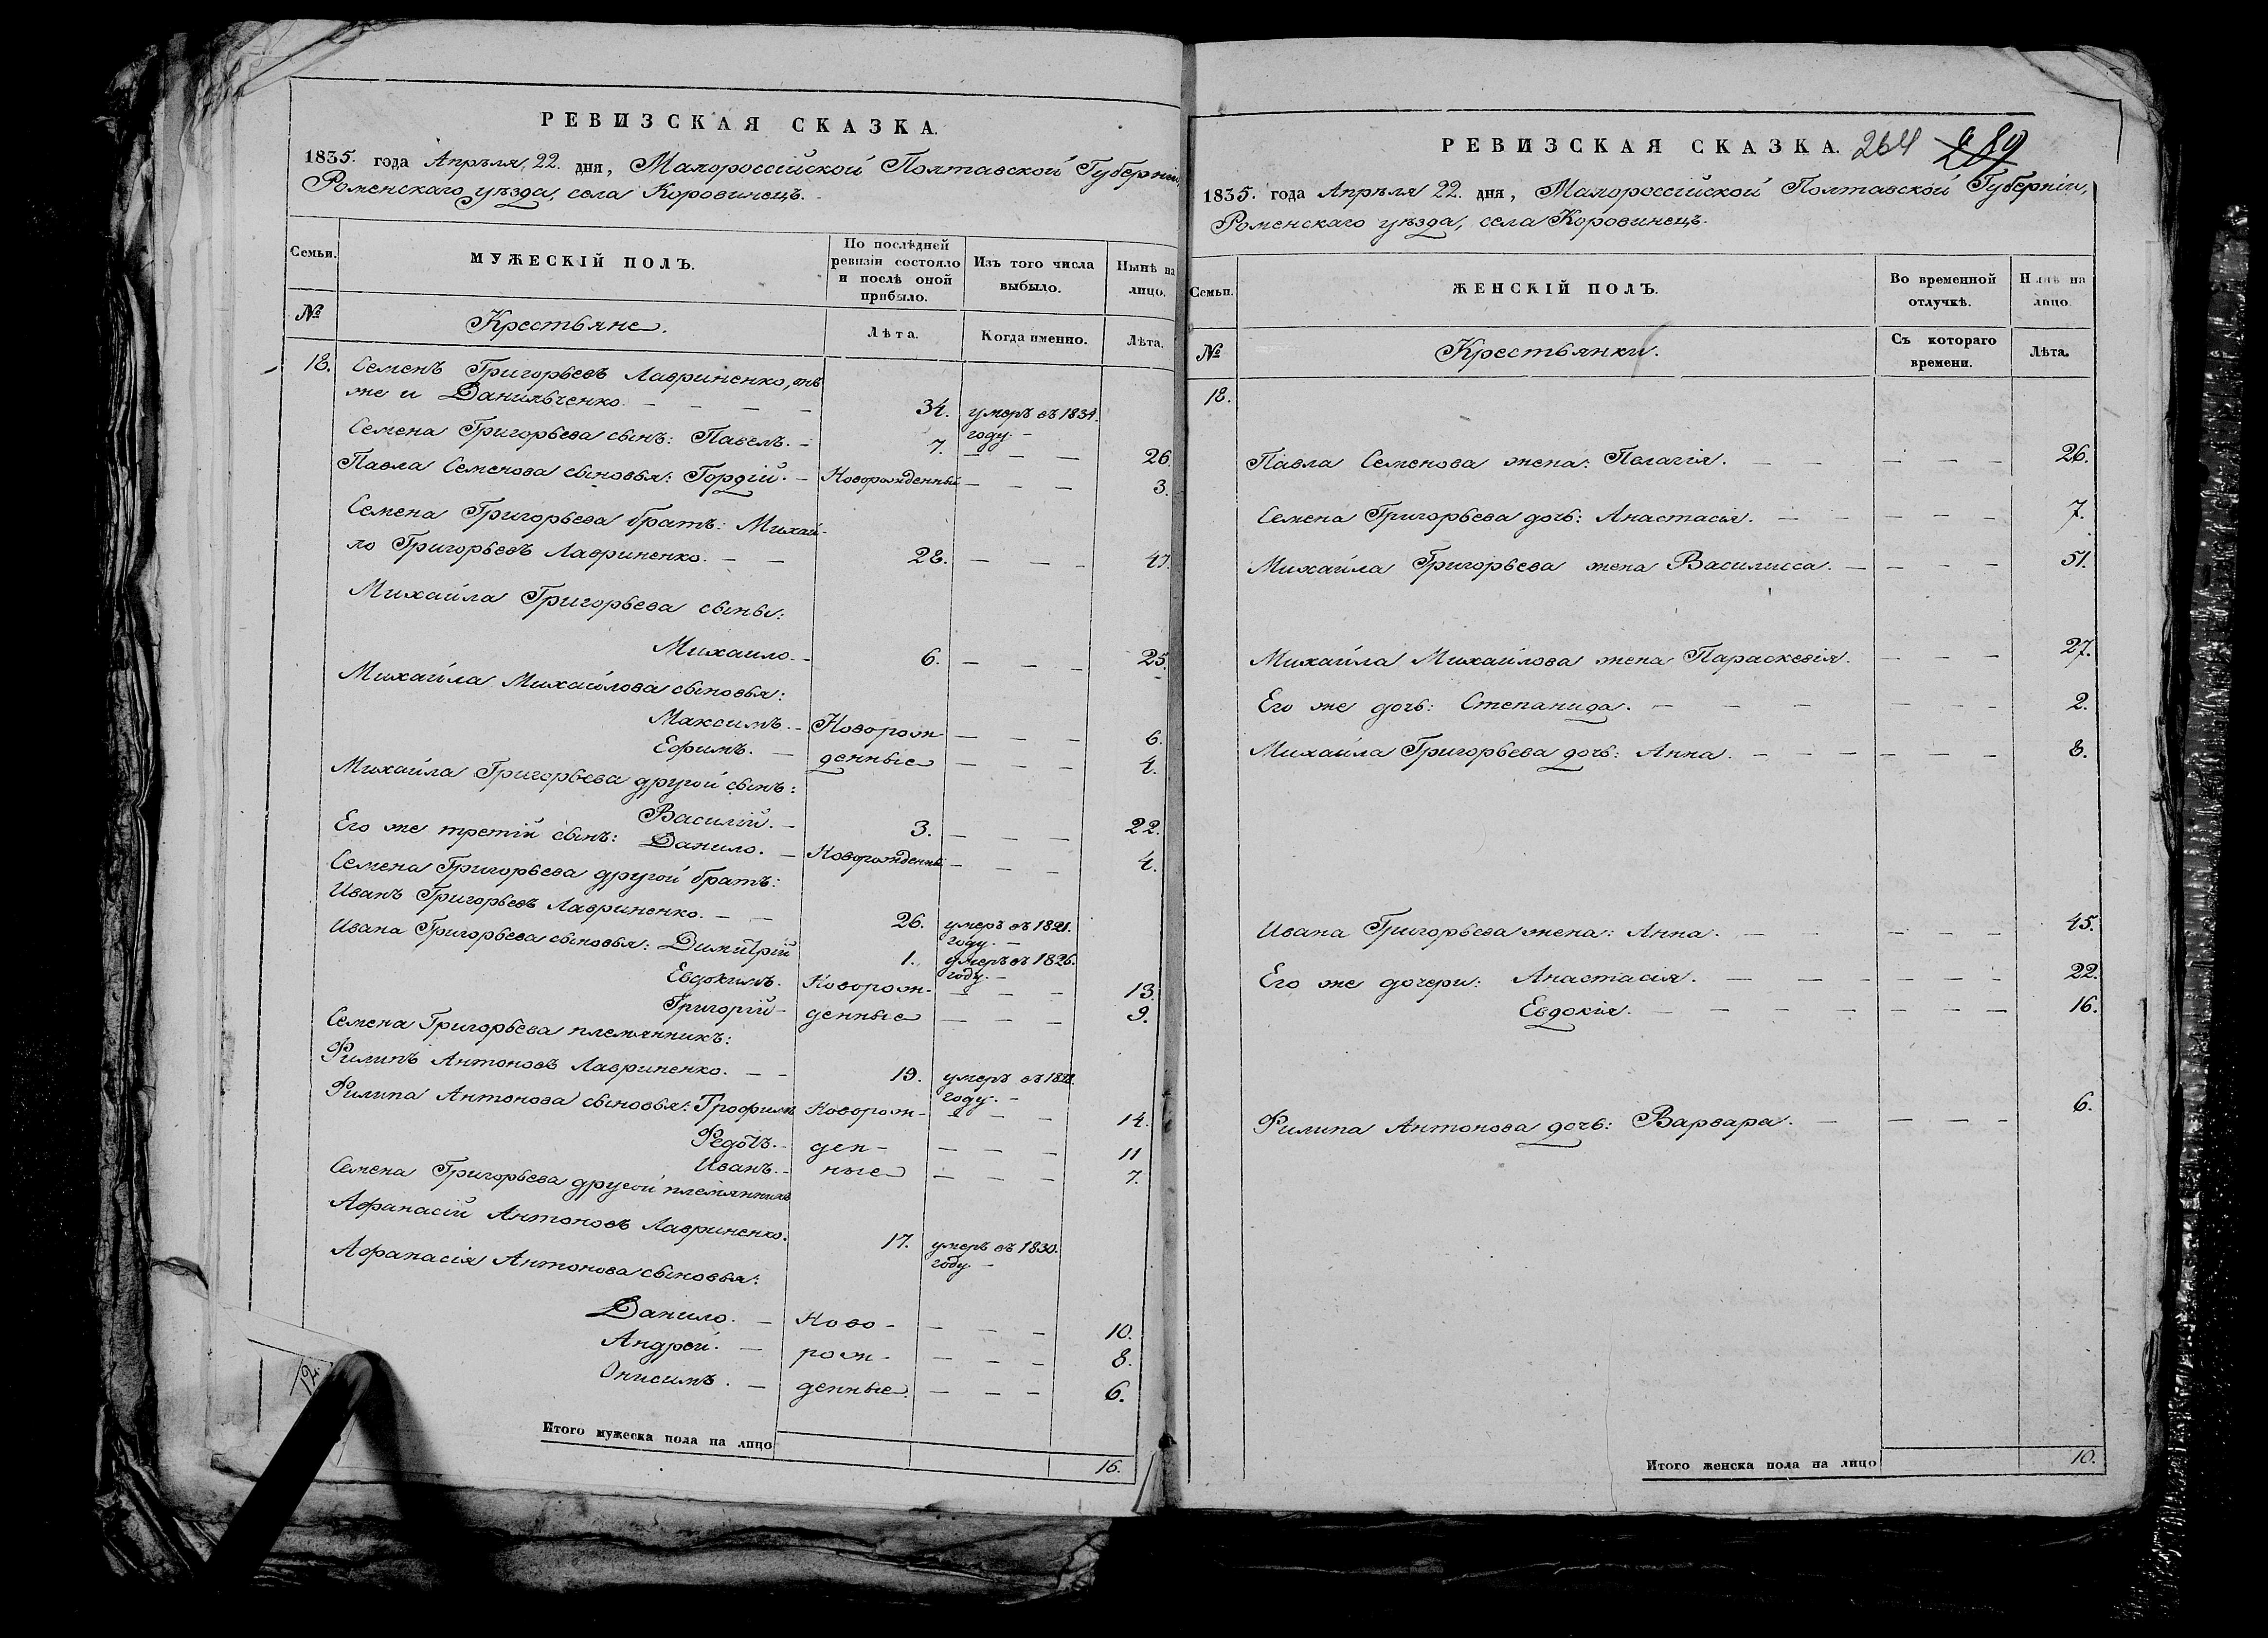 РЕВИЗСКАЯ СКАЗКА.
1835. года Апрѣля 22. дня, Малороссійской Полтавской Губерніи,
Роменскаго уѣзда, села Коровинецъ.
Семьи.
МУЖЕСКІЙ ПОЛЪ.
По послѣдней
ревизіи состояло
и послѣ оной
прибыло.
Изъ того числа
выбыло.
Нынѣ на
лицо.
№
Крестьяне.
Лѣта.
Когда именно.
Лѣта.
18. Семенъ Григорьевъ Лавриненко, онъ
же и Данильченко. — — — — 34. умеръ въ 1834.
году. —
Семена Григорьева сынъ: Павелъ. — 7. — — — 26.
Павла Семенова сыновья: Гордій. — Новорожденный — — — 3.
Семена Григорьева братъ: Михай-
ло Григорьевъ Лавриненко. — — 28. — — — 47.
Михайла Григорьева сыны:
Михайло. — 6. — — — 25.
Михайла Михайлова сыновья:
Максимъ. — Новорож- — — — 6.
Ефимъ. — денные — — — 4.
Михайла Григорьева другой сынъ:
Василій. — 3. — — — 22.
Его же третій сынъ: Данило. — Новорожденный — — — 4.
Семена Григорьева другой братъ:
Иванъ Григорьевъ Лавриненко. — — 26. умеръ въ 1821.
году. —
Ивана Григорьева сыновья: Димитрій 1. умеръ въ 1826.
году. —
Евдокимъ. Новорож- — — — 13.
Григорій — денные — — — 9.
Семена Григорьева племянникъ:
Филипъ Антоновъ Лавриненко. — — 19. умеръ въ
году. —
Филипа Антонова сыновья: Трофимъ Новорож- — — — 14.
Федотъ. — ден- — — — 11
Иванъ. — ные — — — 7.
Семена Григорьева другой племянникъ
Афанасій Антоновъ Лавриненко. 17. умеръ въ 1830.
году. —
Афанасія Антонова сыновья:
Данило. — Ново- — — — 10.
Андрей. — рож- — — — 8.
Онисимъ. — денные. — — — 6.
Итого мужеска пола на лицо
16.
12.
РЕВИЗСКАЯ СКАЗКА. 264
1835. года Апрѣля 22. дня, Малороссійской Полтавской Губерніи,
Роменскаго уѣзда, села Коровинецъ.
Семьи.
ЖЕНСКІЙ ПОЛЪ.
Во временной
отлучкѣ.
Нынѣ на
лицо
№
Крестьянки.
Съ котораго
времени.
Лѣта.
18.
Павла Семенова жена: Палагія. — — — — — 26.
Семена Григорьева дочь: Анастасія. — — — — — 7.
Михайла Григорьева жена Василисса. — — — — 51.
Михайла Михайлова жена Параскевія. — — — 27.
Его же дочь: Степанида. — — — — — 2.
Михайла Григорьева дочь: Анна. — — — — — — 8.
Ивана Григорьева жена: Анна. — — — — — 45.
Его же дочери: Анастасія. — — — — — — 22.
Евдокія. — — — — — — — 16.
Филипа Антонова дочь: Варвара. — — — — 6.
Итого женска пола на лицо
10.